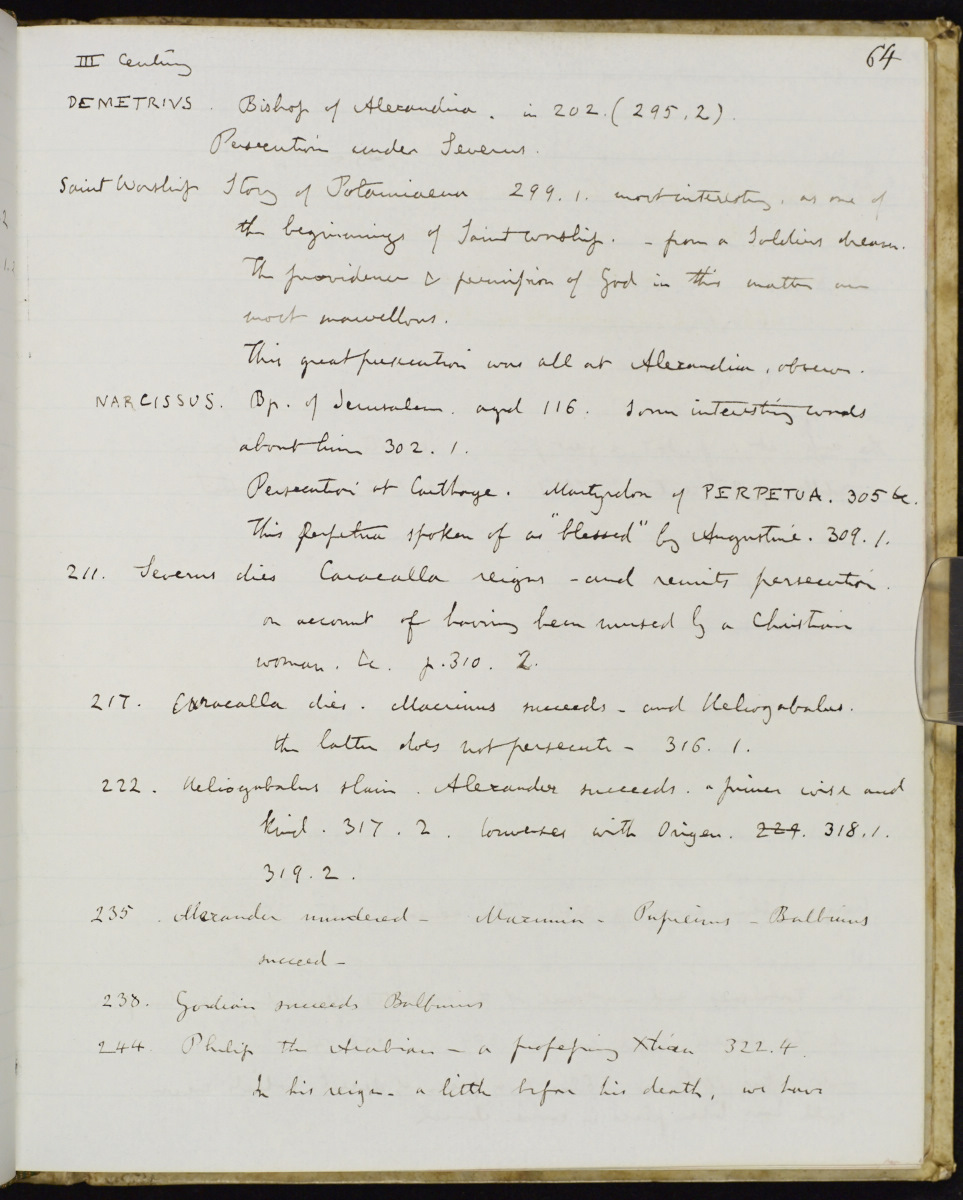 64
III Century
DEMETRIUS. Bishop of Alexandria. in 202. (295.2).
Persecution under Severus.
Saint Worship Story of Potamiaena 299.1. most interesting. as one of
the beginnings of Saint worship. - from a Soldiers dream.
The providence & permission of God in this matter are
most marvellous.
This great persecution was all at Alexandria, observe.
NARCISSUS. Bp. of Jerusalem. aged 116. Some interesting words
about him 302.1.
Persecution at Carthage. Martyrdom of PERPETUA. 305 &c.
This Perpetua spoken of as "blessed" by Augustine. 309.1.
211. Severus dies Caracalla reigns - and remits persecution.
on account of having been nursed by a Christian
woman. &c. p.310. 2.
217. Caracalla dies. Macrinus succeeds - and Heliogabalus.
the latter does not persecute - 316.1.
222. Heliogabalus slain. Alexander succeeds. a prince wise and
kind. 317.2. Converses with Origen. 224. 318.1.
319.2.
235. Alexander murdered - Maximin - Pupienus - Balbinus
succeed -
238. Gordian succeeds Balbinus
244. Philip the Arabian - a professing Xtian 322.4.
In his reign - a little before his death, we have